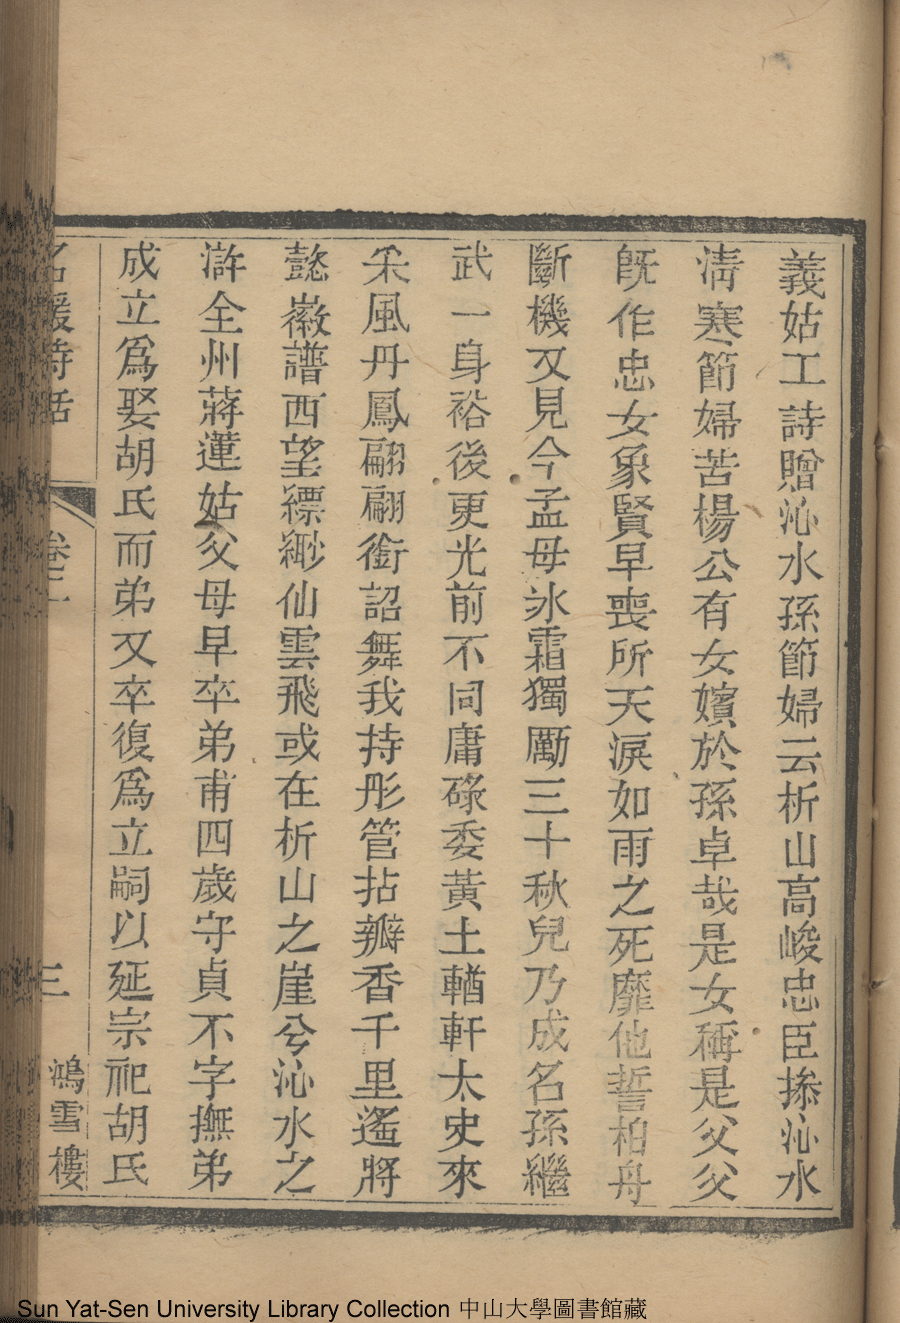 義姑工詩贈沁水孫節婦云析山高峻忠臣摻沁水
淸寒節婦苦楊公有女嬪於孫卓哉是女稱是父父
旣作忠女象賢早喪所天淚如雨之死靡他誓柏舟
斷機又見今孟母冰霜獨勵三十秋兒乃成名孫繼
武一身裕後更光前不同庸碌委黃土輶軒太史來
采風丹鳳翩翩銜詔舞我持彤管拈瓣香千里遙將
懿徽譜西望縹緲仙雲飛或在析山之崖兮沁水之
滸全州蔣蓮姑父母早卒弟甫四歲守貞不字撫弟
成立爲娶胡氏而弟又卒復爲立嗣以延宗祀胡氏
名媛詩話 卷二 三 鴻雪樓
Sun Yat-Sen University Library Collection 中山大學圖書館藏